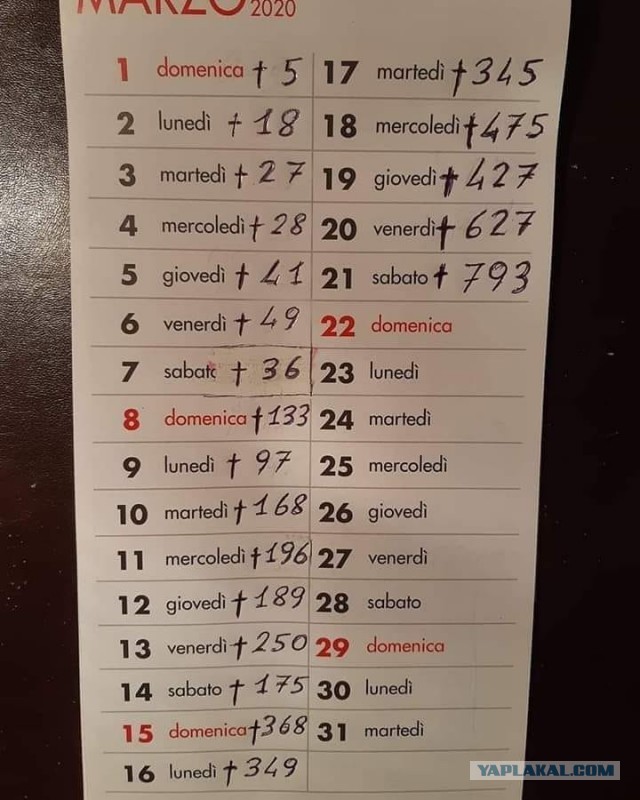 MARZO 2020
1 domenica † 5
2 lunedì † 18
3 martedì † 27
4 mercoledì † 28
5 giovedì † 41
6 venerdì † 49
7 sabato † 36
8 domenica † 133
9 lunedì † 97
10 martedì † 168
11 mercoledì † 196
12 giovedì † 189
13 venerdì † 250
14 sabato † 175
15 domenica † 368
16 lunedì † 349
17 martedì † 345
18 mercoledì † 475
19 giovedì † 427
20 venerdì † 627
21 sabato † 793
22 domenica
23 lunedì
24 martedì
25 mercoledì
26 giovedì
27 venerdì
28 sabato
29 domenica
30 lunedì
31 martedì
YAPLAKAL.COM